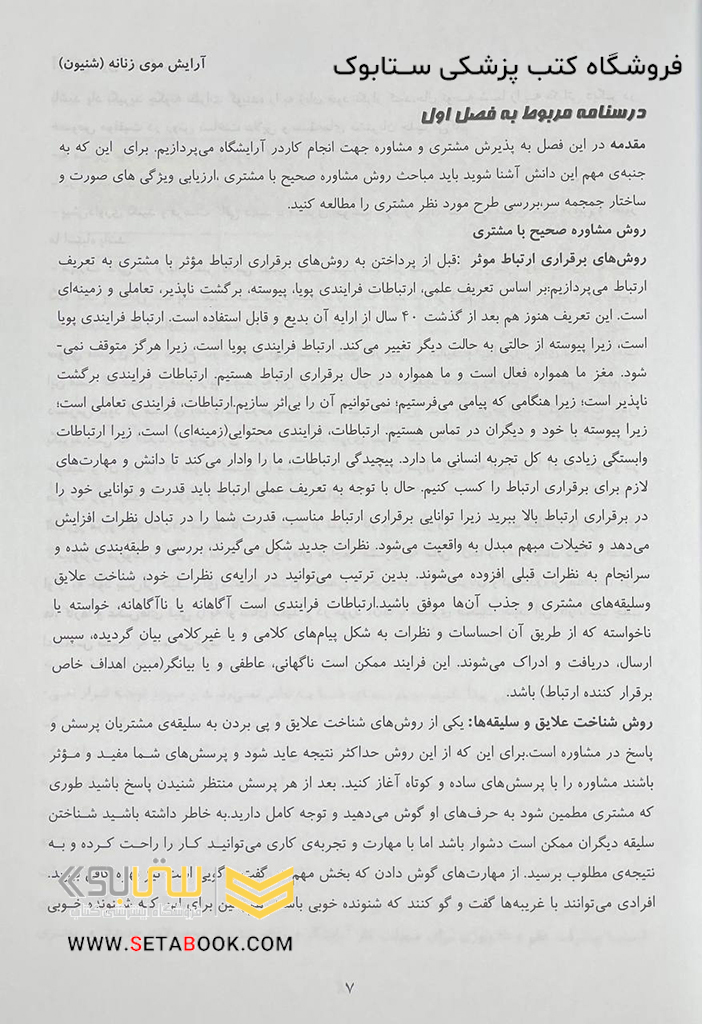 فروشگاه کتب پزشکی ستابوک
آرایش موی زنانه (شنیون)
درسنامه مربوط به فصل اول
مقدمه در این فصل به پذیرش مشتری و مشاوره جهت انجام کاردر آرایشگاه می‌پردازیم. برای این که به
جنبه‌ی مهم این دانش آشنا شوید باید مباحث روش مشاوره صحیح با مشتری ،ارزیابی ویژگی های صورت و
ساختار جمجمه سر،بررسی طرح مورد نظر مشتری را مطالعه کنید.
روش مشاوره صحیح با مشتری
روش‌های برقراری ارتباط موثر :قبل از پرداختن به روش‌های برقراری ارتباط مؤثر با مشتری به تعریف
ارتباط می‌پردازیم:بر اساس تعریف علمی، ارتباطات فرایندی پویا، پیوسته، برگشت ناپذیر، تعاملی و زمینه‌ای
است. این تعریف هنوز هم بعد از گذشت ۴۰ سال از ارایه آن بدیع و قابل استفاده است. ارتباط فرایندی پویا
است، زیرا پیوسته از حالتی به حالت دیگر تغییر می‌کند. ارتباط فرایندی پویا است، زیرا هرگز متوقف نمی-
شود. مغز ما همواره فعال است و ما همواره در حال برقراری ارتباط هستیم. ارتباطات فرایندی برگشت
ناپذیر است؛ زیرا هنگامی که پیامی می‌فرستیم؛ نمی‌توانیم آن را بی‌اثر سازیم.ارتباطات، فرایندی تعاملی است؛
زیرا پیوسته با خود و دیگران در تماس هستیم. ارتباطات، فرایندی محتوایی(زمینه‌ای) است، زیرا ارتباطات
وابستگی زیادی به کل تجربه انسانی ما دارد. پیچیدگی ارتباطات، ما را وادار می‌کند تا دانش و مهارت‌های
لازم برای برقراری ارتباط را کسب کنیم. حال با توجه به تعریف عملی ارتباط باید قدرت و توانایی خود را
در برقراری ارتباط بالا ببرید زیرا توانایی برقراری ارتباط مناسب، قدرت شما را در تبادل نظرات افزایش
می‌دهد و تخیلات مبهم مبدل به واقعیت می‌شود. نظرات جدید شکل می‌گیرند، بررسی و طبقه‌بندی شده و
سرانجام به نظرات قبلی افزوده می‌شوند. بدین ترتیب می‌توانید در ارایه‌ی نظرات خود، شناخت علایق
وسلیقه‌های مشتری و جذب آن‌ها موفق باشید.ارتباطات فرایندی است آگاهانه یا ناآگاهانه، خواسته یا
ناخواسته که از طریق آن احساسات و نظرات به شکل پیام‌های کلامی و یا غیرکلامی بیان گردیده، سپس
ارسال، دریافت و ادراک می‌شوند. این فرایند ممکن است ناگهانی، عاطفی و یا بیانگر(مبین اهداف خاص
برقرار کننده ارتباط) باشد.
روش شناخت علایق و سلیقه‌ها: یکی از روش‌های شناخت علایق و پی بردن به سلیقه‌ی مشتریان پرسش و
پاسخ در مشاوره است.برای این که از این روش حداکثر نتیجه عاید شود و پرسش‌های شما مفید و مؤثر
باشند مشاوره را با پرسش‌های ساده و کوتاه آغاز کنید. بعد از هر پرسش منتظر شنیدن پاسخ باشید طوری
که مشتری مطمین شود به حرف‌های او گوش می‌دهید و توجه کامل دارید.به خاطر داشته باشید شناختن
سلیقه دیگران ممکن است دشوار باشد اما با مهارت و تجربه‌ی کاری می‌توانید کار را راحت کرده و به
نتیجه‌ی مطلوب برسید. از مهارت‌های گوش دادن که بخش مهم گفت
افرادی می‌توانند با غریبه‌ها گفت و گو کنند که شنونده خوبی برای این که شنونده خوبی
ستابوک
WWW.SETABOOK.COM
۷